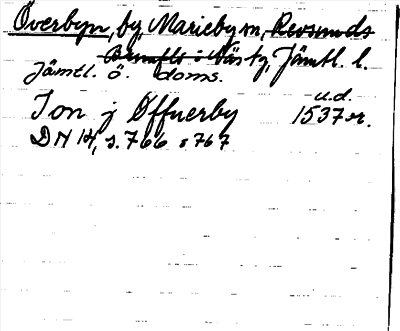 Överbyn, by, Marieby sn, Revsunds
Brunflo i Näs tg, Jämtl. l.
Jämtl. ö. doms.
u.d.
Jon j Øffuerby 1537 or.
DN 14, s. 766 o 767